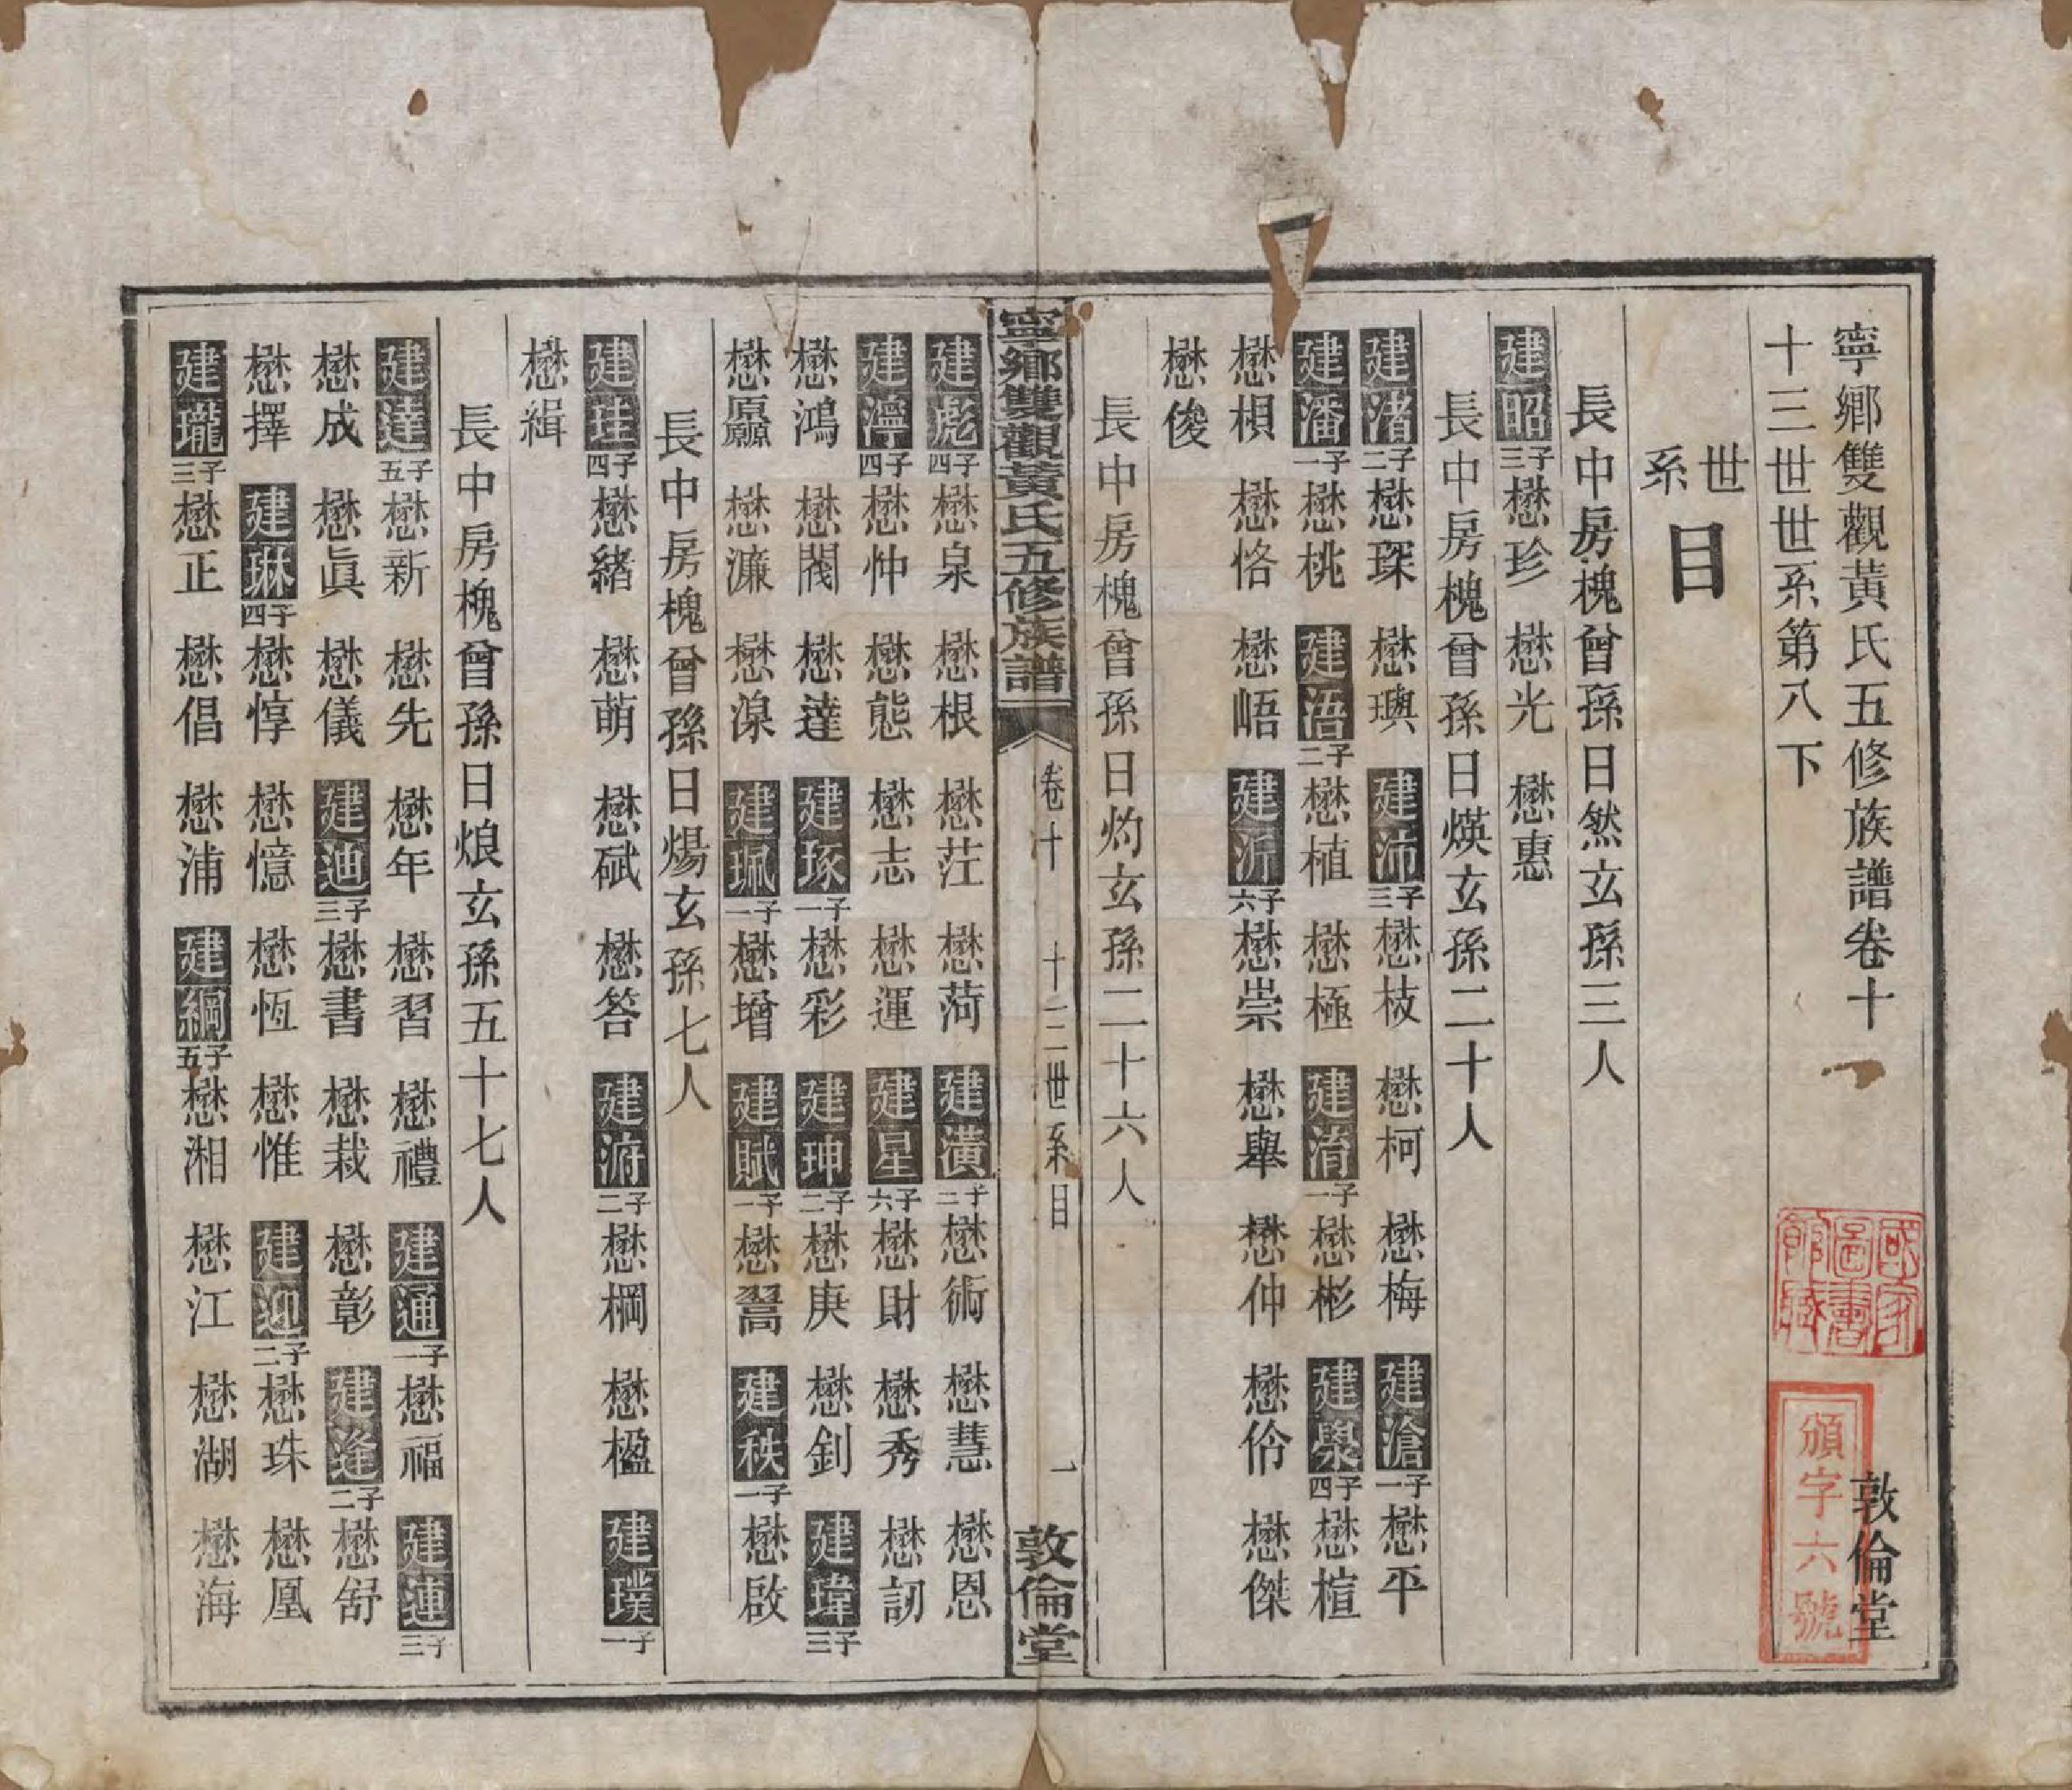 寧鄉雙觀黃氏五修族譜卷十 敦倫堂
十三世世系第八下
世系目
長中房槐曾孫日然玄孫三人
建昭三子 懋珍 懋光 懋惠
長中房槐曾孫日煐玄孫二十人
建渚二子 懋琛 懋璵 建沛三子 懋枝 懋柯 懋梅 建滄一子 懋平
建潘一子 懋桃 建浯二子 懋植 懋極 建淯一子 懋彬 建澩四子 懋楦
懋楨 懋恪 懋峿 建沂六子 懋崇 懋舉 懋仲 懋伶 懋傑
懋俊
長中房槐曾孫日灼玄孫二十六人
寧鄉雙觀黃氏五修族譜 卷十 十三世系目 一 敦倫堂
建彪四子 懋泉 懋根 懋茳 懋菏 建潢三子 懋術 懋慧 懋恩
建濘四子 懋忡 懋態 懋志 懋運 建星六子 懋財 懋秀 懋訒
懋鴻 懋閥 懋達 建琢一子 懋彩 建珅二子 懋庚 懋釗 建瑋三子
懋願 懋濂 懋湶 建珮一子 懋增 建賦一子 懋翯 建秩一子 懋啟
長中房槐曾孫日煬玄孫七人
建珪四子 懋緒 懋萌 懋斌 懋答 建洀二子 懋棡 懋楹 建璞一子
懋緝
長中房槐曾孫日烺玄孫五十七人
建達五子 懋新 懋先 懋年 懋習 懋禮 建通一子 懋福 建連三子
懋成 懋眞 懋儀 建迪三子 懋書 懋栽 懋彰 建逢二子 懋舒
懋擇 建琳四子 懋惇 懋憶 懋恆 懋惟 建迎二子 懋珠 懋凰
建瓏三子 懋正 懋倡 懋浦 建綱五子 懋湘 懋江 懋湖 懋海
國家圖書館藏
頒字六號